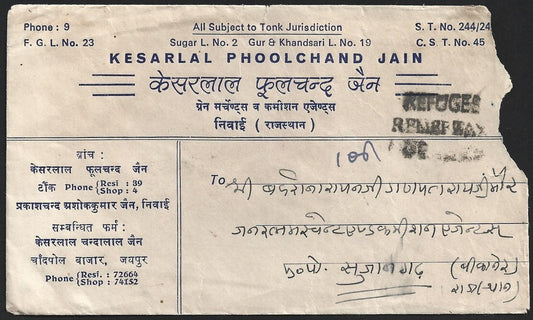 Phone : 9
All Subject to Tonk Jurisdiction
S. T. No. 244/24
F. G. L. No. 23
Sugar L. No. 2 Gur & Khandsari L. No. 19
C. S. T. No. 45
KESARLAL PHOOLCHAND JAIN
केसरलाल फूलचन्द जैन
ग्रेन मर्चेण्ट्स व कमीशन एजेण्ट्स
निवाई ( राजस्थान )
REFUGEE
RELIEF
ब्रांच :
केसरलाल फूलचन्द जैन
टौंक Phone { Resi : 39
Shop : 4
प्रकाशचन्द अशोककुमार जैन, निवाई
सम्बन्धित फर्म :
केसरलाल चन्दालाल जैन
चांदपोल बाजार, जयपुर
Phone { Resi. : 72664
Shop : 74152
To श्री
जनरल मरचेन्ट एण्ड कमीशन एजेन्ट्स
सुजानगढ़ (बीकानेर)